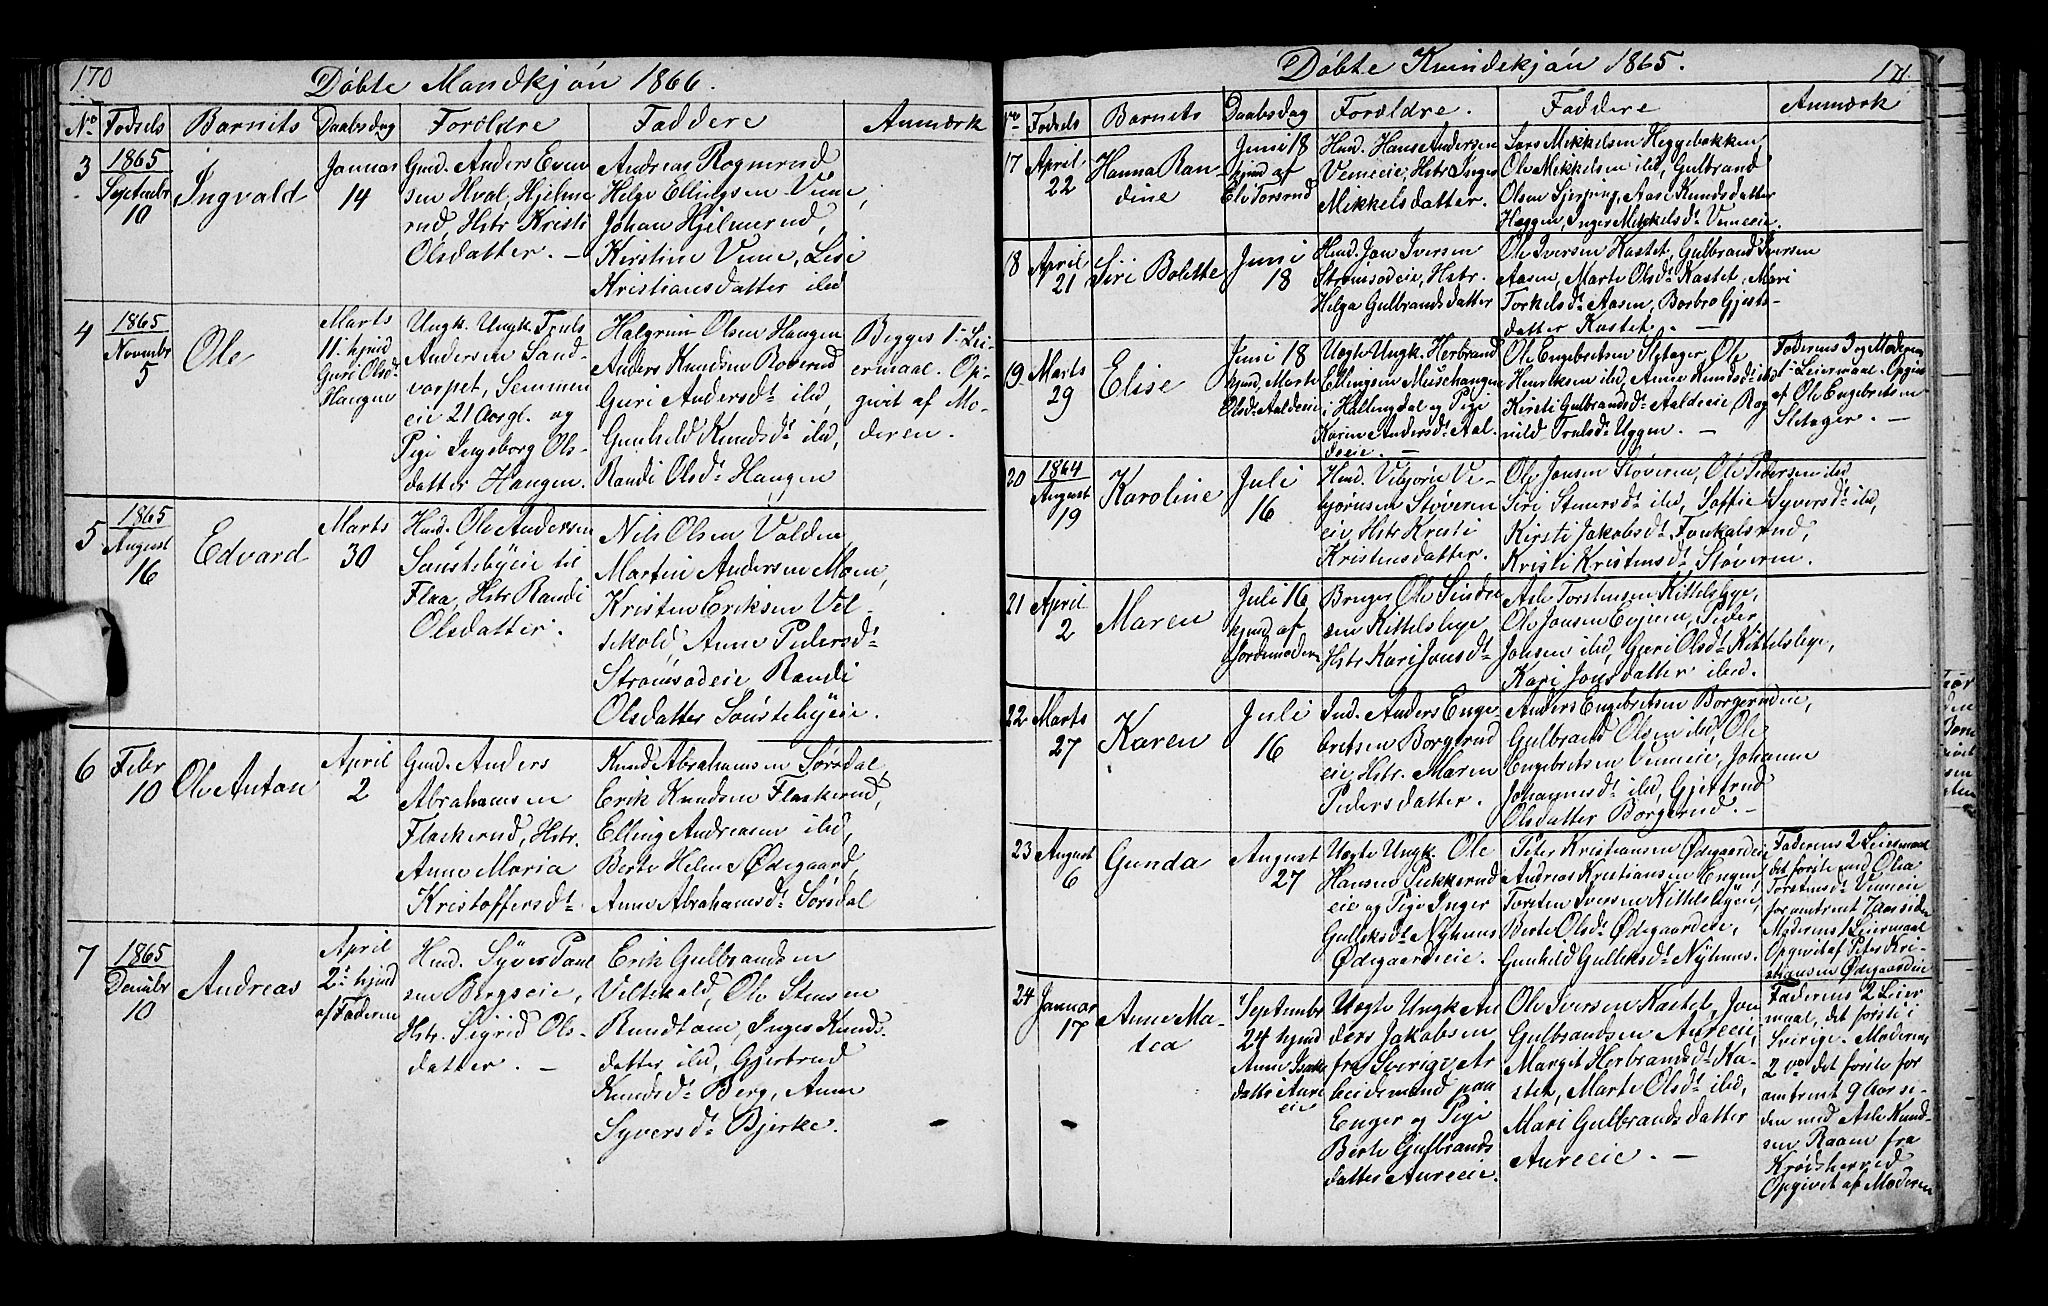 170
Döbte Mandkjön 1866.
No Födsels Barnets Daabsdag Forældre Faddere Anmærk
3
1865
September
10
Ingvald
Januar
14
Gmd. Anders Even
sen Hval, Hjelme
rud, Hstr Kristi
Olsdatter. —
Andreas Rognerud
Helge Ellingsen Vime,
Johan Hjelmerud,
Kirstine Vime, Lisi
Kristiansdatter ibd
4
1865
Novembr
5
Ole
Marts
11. hjmd
Guri Olsdt
Haugen
Ungk. Ungk. Truls
Andersen Sand-
vorpet, Semmen
eie 21 Aar gl. og
Pige Ingeborg Ols-
datter Haugen.
Halgrim Olsen Haugen
Anders Knudsen Roverud
Guri Andersdt ibd,
Gunhild Knudsdt ibd,
Randi Olsdt Haugen
Begges 1ste Lei-
ermaal. Op-
givet af Mo-
deren.
5
1865
August
16
Edvard
Marts
30
Hmd. Ole Andersen
Sönstebyeie til
Flaa, Hstr Randi
Olsdatter.
Nils Olsen Volden
Martin Andersen Moen,
Kristen Eriksen Vel-
tekold, Anne Pedersdt
Strömsodeie Randi
Olsdatter Sönstebyeie.
6
Febr
10
Ole Anton
April
2
Gmd. Anders
Abrahamsen
Flaskerud, Hstr.
Anne Maria
Kristoffersdt
Knud Abrahamsen Sørsdal,
Erik Knudsen Flaskerud,
Elling Andreasen ibd,
Berte Helene Ødegaard,
Anne Abrahamsdt Sørsdal
7
1865
Decmbr
10
Andreas
April
2. hjmd
af Faderen
Hmd. Syver Paul
sen Bergseie,
Hstr. Sigrid Ols-
datter. —
Erik Gulbrandsen
Veltekold, Ole Stensen
Rundtom, Inger Knuds-
datter ibd, Gjertrud
Knudsdt Berg, Anne
Syversdt Bjerke.
Döbte Kvindekjön 1865.
171.
No Födsels Barnets Daabsdag Forældre. Faddere Anmærk
17
April
22
Hanna Ran-
dine
Juni 18
hjmd af
Eli Torsrud
Hmd. Hans Andersen
Vemeeie, Hstr Inger
Mikkelsdatter.
Lars Mikkelsen Heggebakken,
Ole Mikkelsen ibd, Gulbrand
Olsen Sjerping, Aase Knudsdatter
Heggen, Inger Mikkelsdt Vemeeie.
18
April
21
Siri Bolette
Juni
18
Hmd. Jon Iversen
Strömsodeie, Hstr.
Helga Gulbrandsdatter
Ole Iversen Kastet, Gulbrand Iversen
Aasen, Marte Olsdt Kastet, Mari
Torkelsdt Aasen, Borbro Gjuts-
datter Kastet. —
19.
Marts
29
Elise
Juni 18
hjmd. Marte
Olsdt Aaldeeie
Uegte Ungk. Herbrand
Ellingsen Meiehaugen
i Hallingdal og Pige
Karen Andersdt Aal-
deeie. —
Ole Engebretsen Sletager, Ole
Henriksen ibd, Anne Knudsdt ibd
Kirsti Gulbrandsdt Aaldeeie, Rag
nild Trulsdt Uggen. —
Faderens 3. og Moderens
1. Leiermaal. Opgivet
af Ole Engebretsen
Sletager. —
20
1864
August
19
Karoline
Juli
16
Hmd. Vebjörn Ve-
bjørnsen Støveren
eie, Hstr Kristi
Kristensdatter.
Ole Jonsen Støveren, Ole Pedersen ibd
Siri Stenersdt ibd, Soffie Syversdt ibd,
Kirsti Jakobsdt Trukalsrud,
Kristi Kristensdt Støveren.
21
April
2
Maren
Juli 16
hjmd. af
Jordemoderen
Bruger Ole Sinder
sen Kittelsbye
Hstr Kari Jonsdt
Asle Torstensen Kittelsbye,
Ole Jonsen Evjeien, Peder
Jonsen ibd, Guri Olsdt Kittelsbye,
Kari Jonsdatter ibid.
22
Marts
27
Karen
Juli
16
Ind. Anders Enge
bretsen Borgerud
eie, Hstr. Maren
Pedersdatter.
Anders Engebretsen Borgerudeie,
Gulbrand Olsen ibd, Ole
Engebretsen Vemeeie, Johanne
Johannesdt ibd, Gjertrud
Olsdatter Borgerud. —
23
August
6
Gunda
August
27
Uegte Ungk. Ole
Hansen Sekkerud
eie og Pige Inger
Gulleksdt Nyhuus
Ødegaardeie.
Peter Kristiansen Ødegaardeie
Andreas Kristiansen Engen,
Torsten Iversen Kittelsbyeie,
Berte Olsdt Ødegaardeie,
Gunhild Gulleksdt Nyhuus.
Faderens 2 Leiermaal
det förste med Olia
Torstensdt Vemeeie
for omtrent 7 Aar siden
Moderens 1 Leiermaal
Opgivet af Peter Kri-
stiansen Ødegaardeie
24
Januar
17
Anne Ma-
tea
September
24 hjmd
Anne Isaks
datter Aure
eie
Uegte Ungk An
ders Jakobsen
fra Sverige, Ar
beidsmand paa
Enger og Pige
Berte Gulbrands
datter Aureeie.
Ole Iversen Kastet, Jon
Gulbrandsen Aureeie,
Margit Herbrandsdt Ka-
stet, Marte Olsdt ibd,
Mari Gulbrandsdatter
Aureeie. —
Faderens 2 Leier
maal, det förste i
Sverige. Moderens
2 det förste for
omtrent 9 Aar si-
den med Asle Knud-
sen Raaen fra
Krödsherred
Opgivet af Moderen